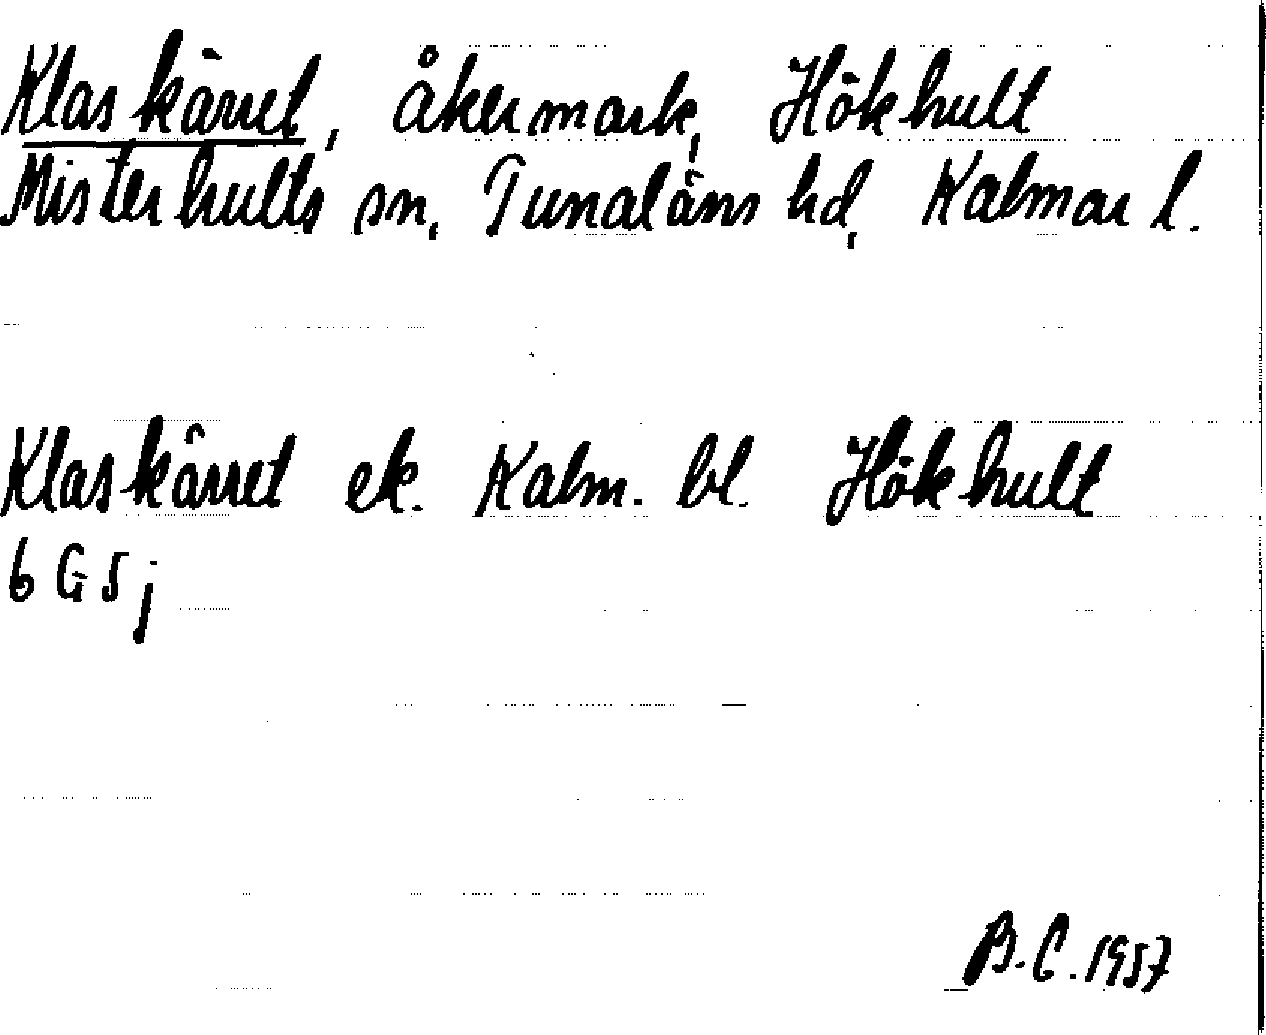 Klaskärret, åkermark, Hökhult
Misterhults sn, Tunaläns hd, Kalmar l.
Klaskärret ek. Kalm. bl. Hökhult
6 G 5 j
B.C. 1957